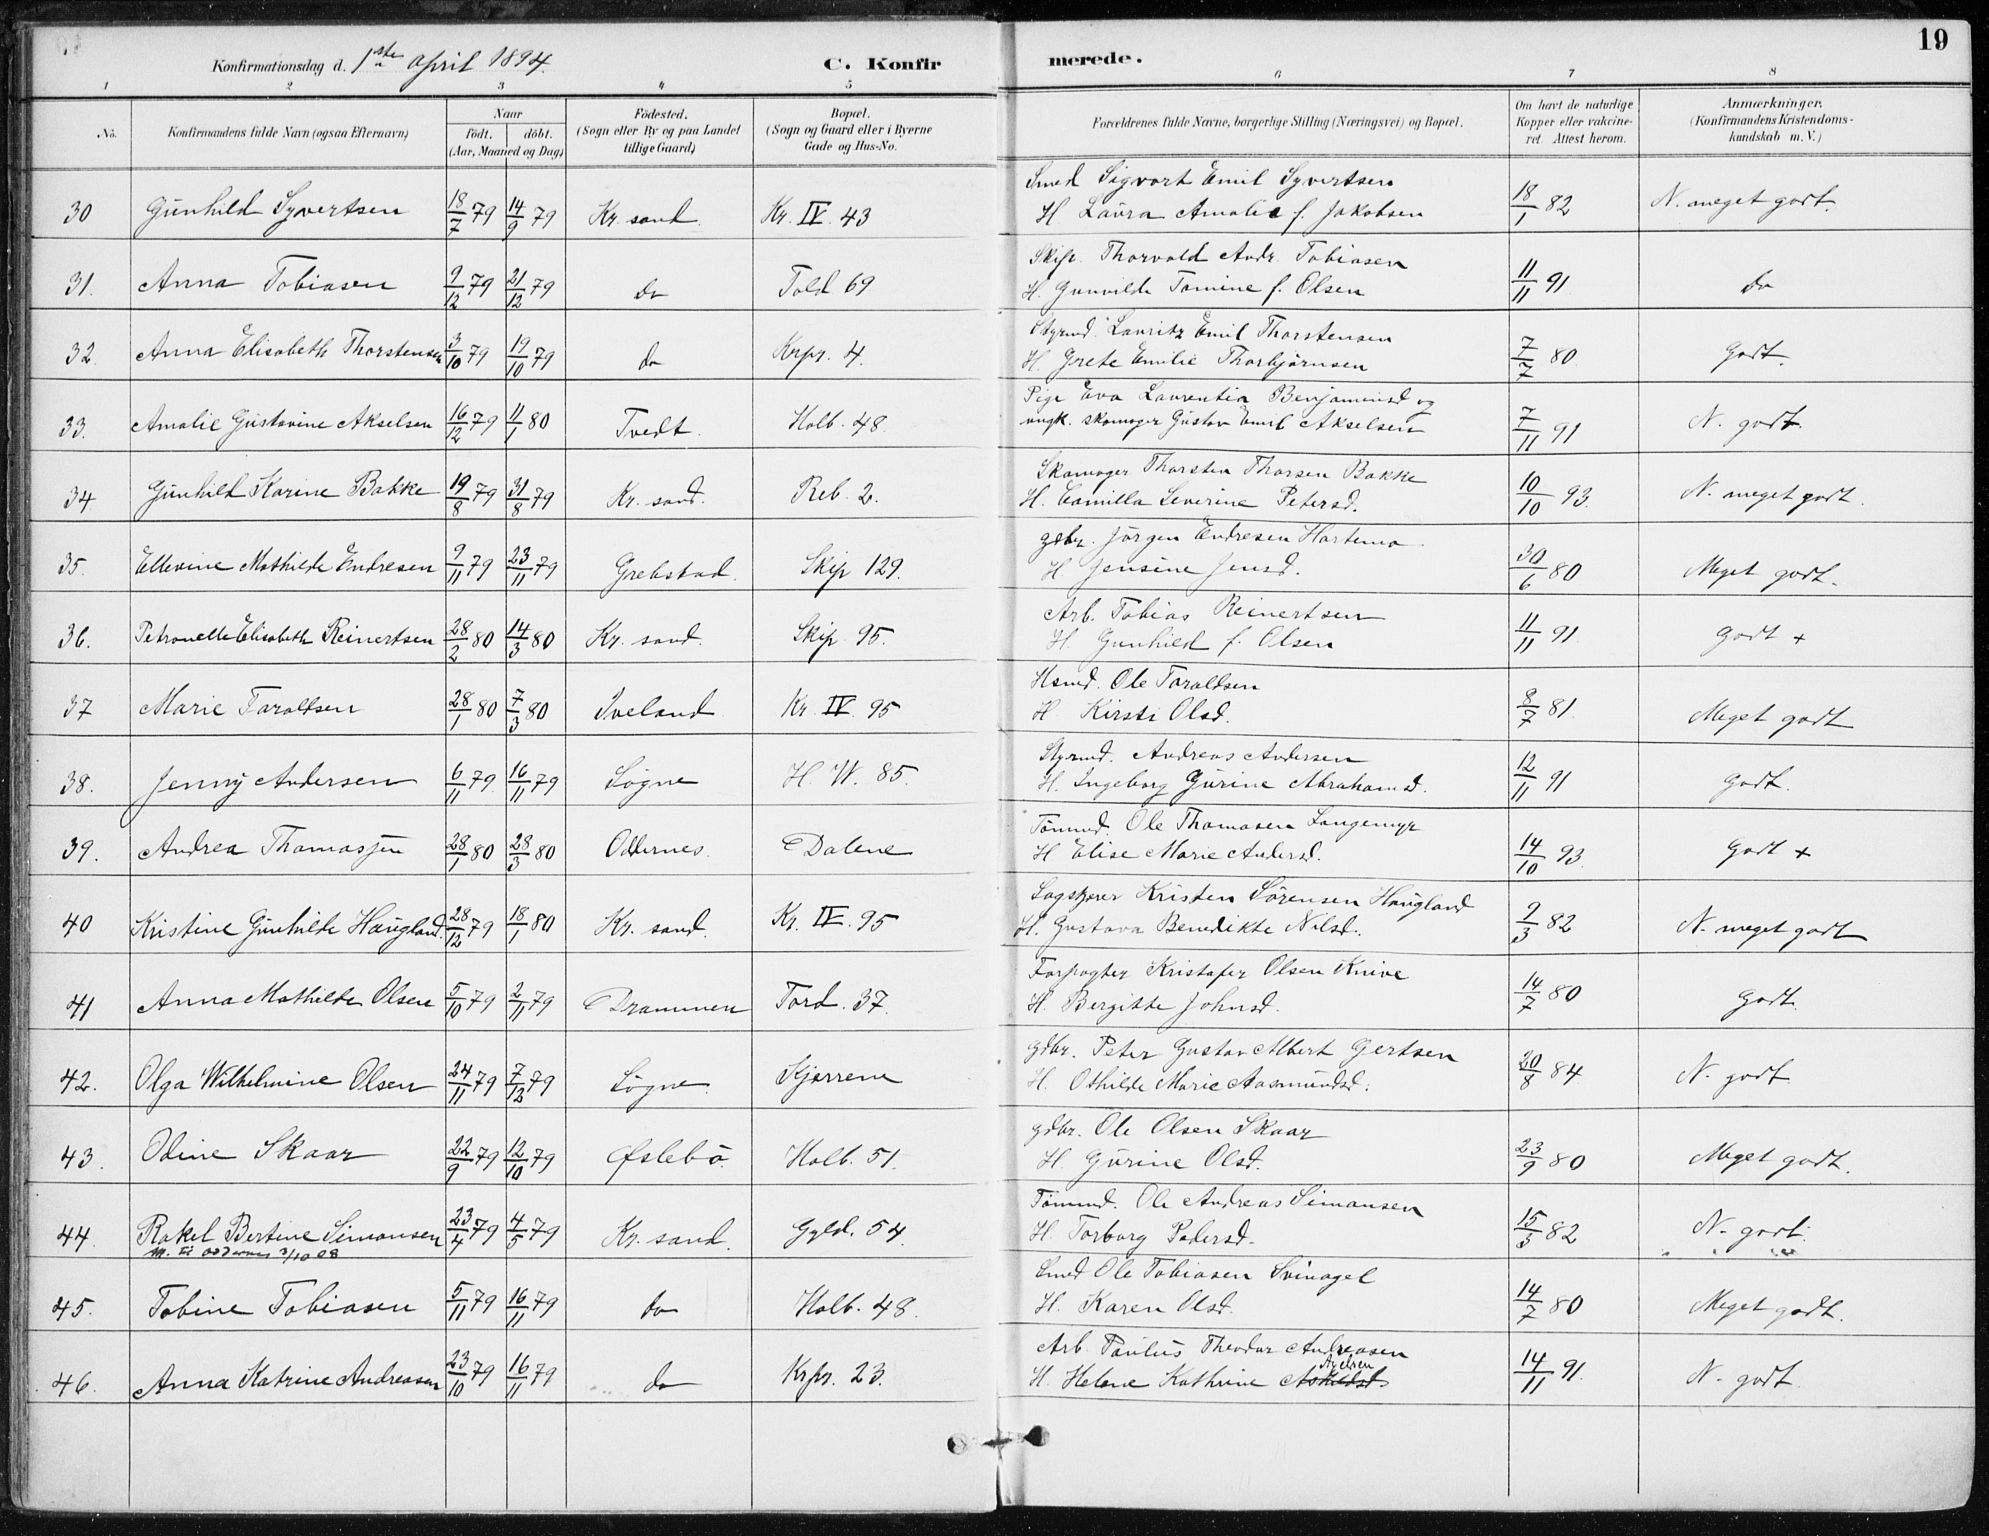 19
Konfirmationsdag d. 1ste April 1894.
C. Konfirmerede.
1 2 3 4 5 6 7 8
No.
Konfirmandens fulde Navn (ogsaa Efternavn)
Naar
födt. döbt.
(Aar, Maaned og Dag)
Födested.
(Sogn eller By og paa Landet
tillige Gaard)
Bopæl.
(Sogn og Gaard eller i Byerne
Gade og Hus-No.
Forældrenes fulde Navne, borgerlige Stilling (Næringsvei) og Bopæl.
Om havt de naturlige
Kopper eller vakcine-
ret. Attest herom.
Anmærkninger.
(Konfirmandens Kristendoms-
kundskab m. V.)
30 Gunhild Syvertsen 18/7 79 14/9 79 Kr. sand. Kr. IV. 43 Smed Sigvart Emil Syvertsen
H. Laura Amalie f. Jakobsen 18/1 82 N. meget godt.
31. Anna Tobiasen 9/12 79 21/12 79 do Told 69 Skip. Thorvald Andr. Tobiasen
H. Gunvilde Tomine f. Olsen 11/11 91 do
32. Anna Elisabeth Thorstensen 3/10 79 19/10 79 do Krpr. 4. Styrmd. Lauritz Emil Thorstensen
H. Grete Emilie Thorbjörnsen 7/7 80 Godt.
33. Amalie Gustavine Akselsen 16/12 79 11/1 80 Tvedt. Holb. 48. Pige Eva Laurentia Benjaminsd og
ungk. skomager Gustav Emil Akselsen 7/11 91 N. godt.
34 Gunhild Karine Bakke 19/8 79 31/8 79 Kr. sand. Reb. 2. Skomager Thorsten Thorsen Bakke
H. Camilla Severine Petersd. 10/10 93. N. meget godt.
35. Ellevine Mathilde Endresen 9/11 79 23/11 79 Grebstad. Skip 129. gdbr. Jörgen Endresen Hartemo
H Jensine Jensd. 30/6 80 Meget godt.
36. Petronelle Elisabeth Reinertsen 28/2 80 14/3 80 Kr. sand. Skip. 95. Arb. Tobias Reinertsen
H. Gunhild f. Olsen 11/11 91. Godt +
37 Marie Taraldsen 28/1 80 7/3 80 Iveland Kr. IV. 95 Hsmd. Ole Taraldsen
H. Kirsti Olsd. 8/7 81. Meget godt
38. Jenny Andersen 6/11 79. 16/11 79 Sögne H. W. 85. Styrmd. Andreas Andersen
H. Ingeborg Gurine Abrahamsd. 12/11 91 Godt.
39. Andrea Thomassen 28/1 80 28/3 80 Oddernes. Dalene Tömmd. Ole Thomasen Langemyr
H Elise Marie Andersd. 14/10 93. Godt +
40 Kristine Gunhilde Haugland. 28/12 79 18/1 80 Kr. sand. Kr. IV. 95 Sagskjærer Kristen Sörensen Haugland
H. Gustava Benedikte Nilsd. 9/3 82 N. meget godt
41 Anna Mathilde Olsen 5/10 79 2/11 79 Drammen Tord. 37. Forpagter Kristofer Olsen Knive
H. Bergitte Johnsd. 14/7 80 Godt.
42. Olga Wilhelmine Olsen 24/11 79 7/12 79 Sögne Kjærrene gdbr. Peter Gustav Albert Gertsen
H. Othilde Marie Aasmundsd. 20/8 84. N. godt
43. Odine Skaar 22/9 79 12/10 79 Øslebö. Holb. 51. gdbr. Ole Olsen Skaar
H. Gurine Olsd. 23/9 80 Meget godt.
44. Rakel Bertine Simonsen 23/4 79 4/5 79 Kr. sand. Gyld. 54. Tömmd. Ole Andreas Simonsen
M. til Oddernes 3/10 08
H. Torborg Pedersd. 15/3 82 N. godt.
45. Tobine Tobiasen 5/11 79 16/11 79 do Holb. 48. Smed Ole Tobiasen Svinagel
H. Karen Olsd. 14/7 80 Meget godt.
46. Anna Katrine Andreasen 23/10 79 16/11 79 do Krpr. 23. Arb. Paulus Theodor Andreasen
H. Helene Kathrine
14/11 91. N. godt.